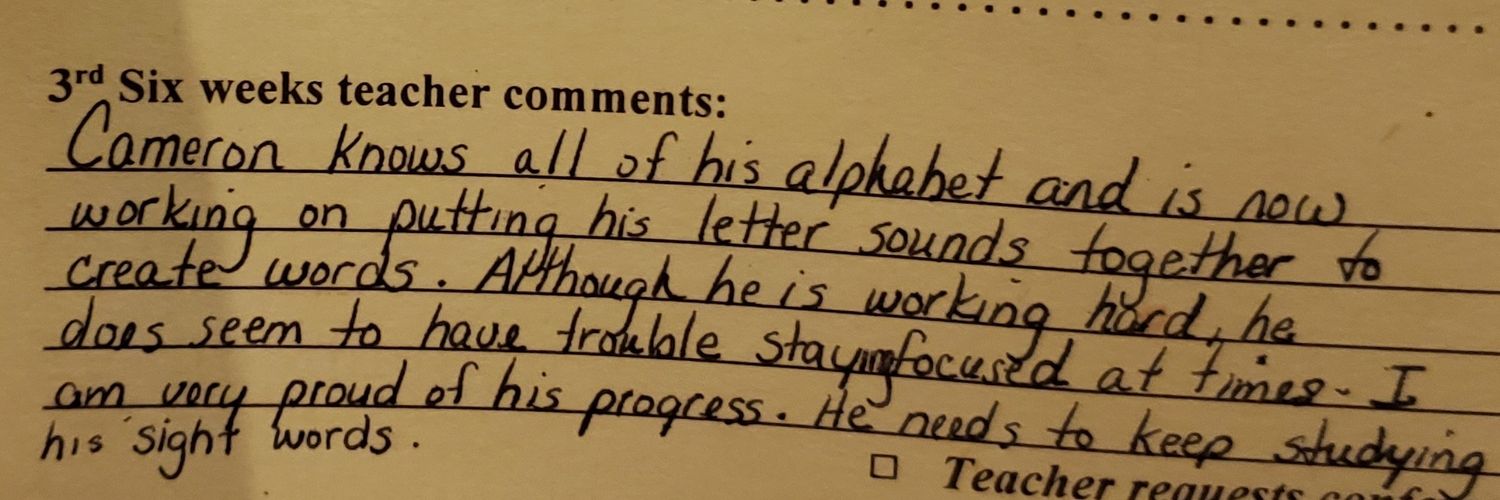 3rd Six weeks teacher comments:
Cameron knows all of his alphabet and is now
working on putting his letter sounds together to
create words. Although he is working hard, he
does seem to have trouble staying focused at times. I
am very proud of his progress. He needs to keep studying
his sight words.
□ Teacher requests